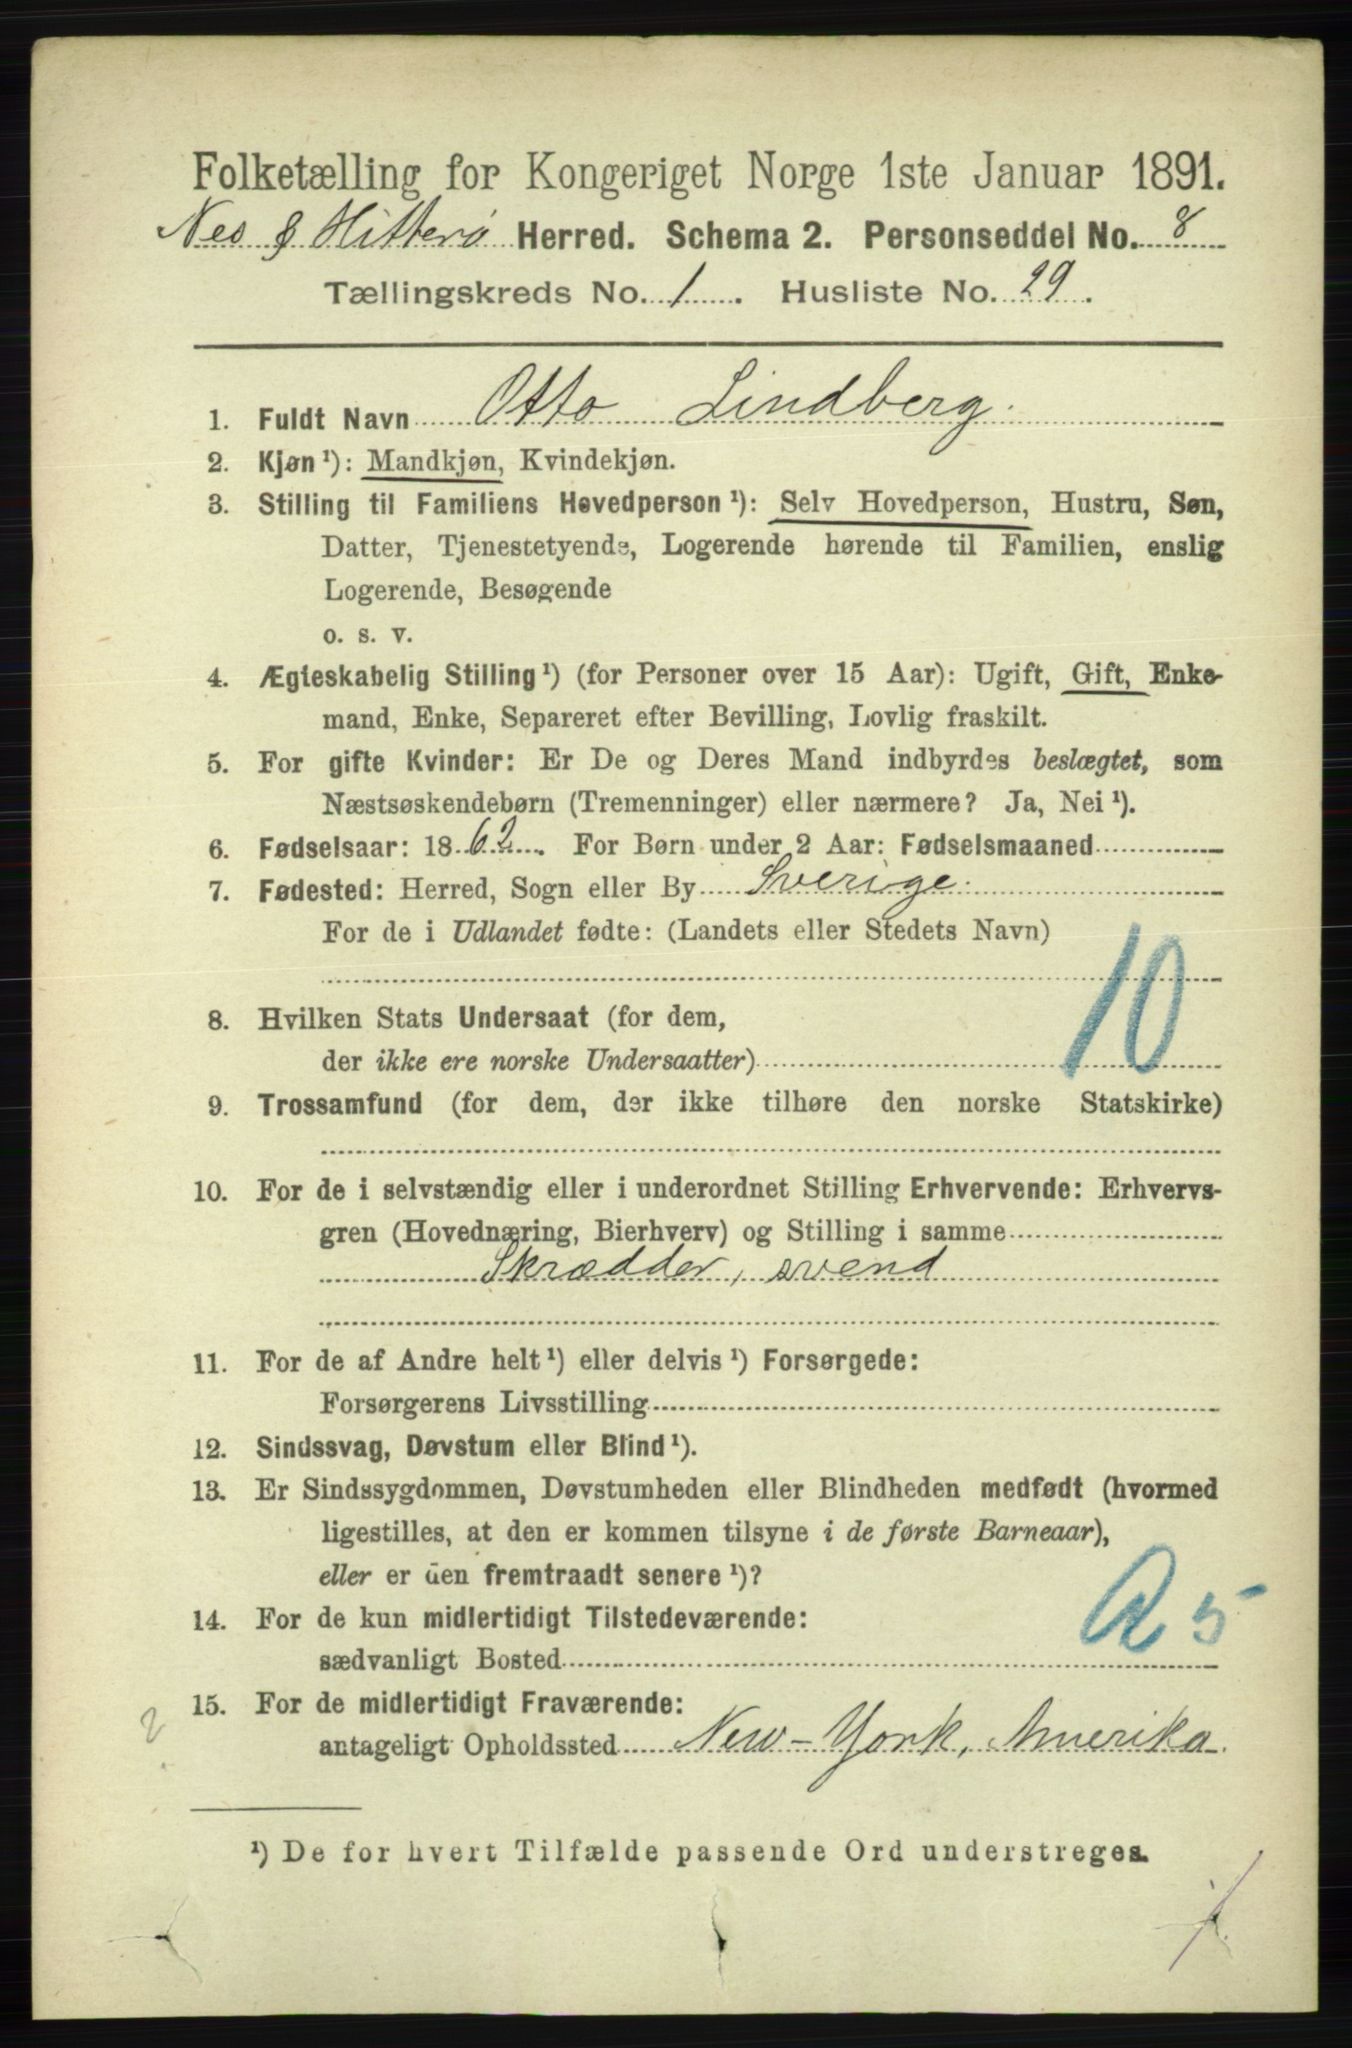 Folketælling for Kongeriget Norge 1ste Januar 1891.
Nes & Hitterø Herred. Schema 2. Personseddel No. 8
Tællingskreds No. 1. Husliste No. 29.
1. Fuldt Navn Otto Lindberg.
2. Kjøn ¹): Mandkjøn, Kvindekjøn.
3. Stilling til Familiens Hovedperson ¹): Selv Hovedperson, Hustru, Søn,
Datter, Tjenestetyende, Logerende hørende til Familien, enslig
Logerende, Besøgende
o. s. v.
4. Ægteskabelig Stilling ¹) (for Personer over 15 Aar): Ugift, Gift, Enke-
mand, Enke, Separeret efter Bevilling, Lovlig fraskilt.
5. For gifte Kvinder: Er De og Deres Mand indbyrdes beslægtet, som
Næstsøskendebørn (Tremenninger) eller nærmere? Ja, Nei ¹).
6. Fødselsaar: 1862. For Børn under 2 Aar: Fødselsmaaned
7. Fødested: Herred, Sogn eller By Sverige.
For de i Udlandet fødte: (Landets eller Stedets Navn)
10
8. Hvilken Stats Undersaat (for dem,
der ikke ere norske Undersaatter)
9. Trossamfund (for dem, der ikke tilhøre den norske Statskirke)
10. For de i selvstændig eller i underordnet Stilling Erhvervende: Erhvervs-
gren (Hovednæring, Bierhverv) og Stilling i samme
Skrædder, svend
11. For de af Andre helt ¹) eller delvis ¹) Forsørgede:
Forsørgerens Livsstilling
12. Sindssvag, Døvstum eller Blind ¹).
13. Er Sindssygdommen, Døvstumheden eller Blindheden medfødt (hvormed
ligestilles, at den er kommen tilsyne i de første Barneaar),
eller er den fremtraadt senere ¹)?
14. For de kun midlertidigt Tilstedeværende:
sædvanligt Bosted
15. For de midlertidigt Fraværende:
antageligt Opholdssted New-York, Amerika.
2
¹) De for hvert Tilfælde passende Ord understreges.